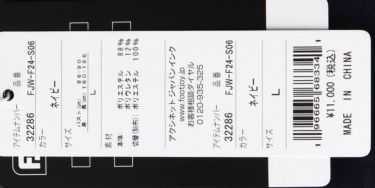 品番
FJW-F24-S06
アイテムナンバー
32286
カラー
ネイビー
サイズ
バスト(cm) 86-90
身長(cm) 160-166
L
素材
本体: ポリエステル 88%
ポリウレタン 12%
切替(別布): ポリエステル 100%
アクシネットジャパンインク
www.footjoy.jp
お客様相談ダイヤル
0120-935-325
品番
FJW-F24-S06
アイテムナンバー
32286
カラー
ネイビー
サイズ
L
1 96665 68334
¥11,000(税込)
MADE IN CHINA